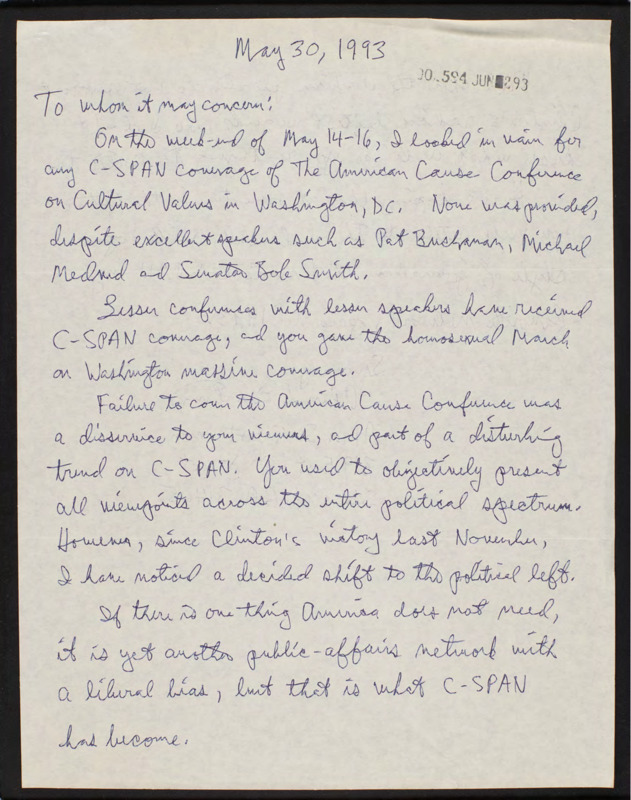 May 30, 1993
JUN 293
To whom it may concern:
On the week-end of May 14-16, I looked in vain for
any C-SPAN coverage of The American Cause Conference
on Cultural Values in Washington, DC. None was provided,
despite excellent speakers such as Pat Buchanan, Michael
Medved and Senator Bob Smith.
Lesser conferences with lesser speakers have received
C-SPAN coverage, and you gave the homosexual March
on Washington massive coverage.
Failure to cover the American Cause Conference was
a disservice to your viewers, and part of a disturbing
trend on C-SPAN. You used to objectively present
all viewpoints across the entire political spectrum.
However, since Clinton's victory last November,
I have noticed a decided shift to the political left.
If there is one thing America does not need,
it is yet another public-affairs network with
a liberal bias, but that is what C-SPAN
has become.